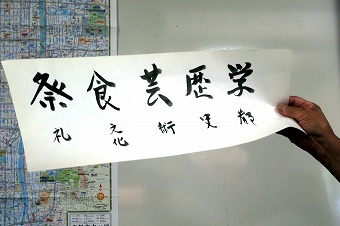 学都
歴史
芸術
食文化
祭礼